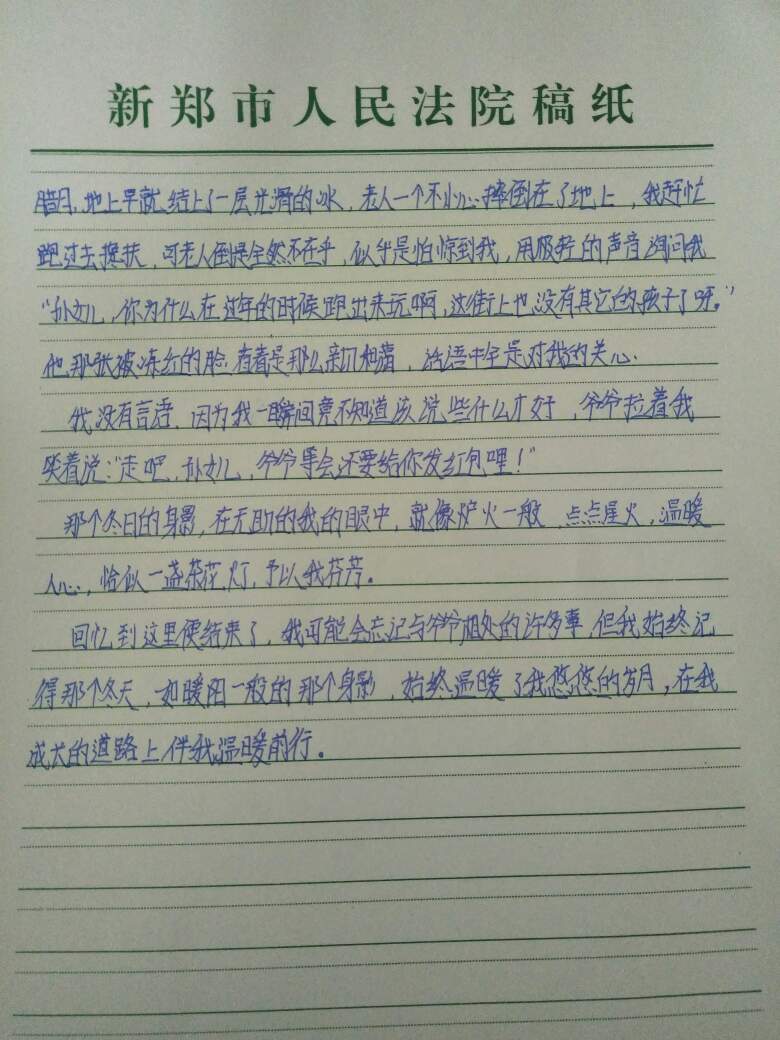 新郑市人民法院稿纸
腊月,地上早就结上了一层光滑的冰,老人一个不小心摔倒在了地上,我赶忙
跑过去搀扶,可老人倒是全然不在乎,似乎是怕惊到我,用极轻的声音询问我
“孙女儿,你为什么在过年的时候跑出来玩啊,这街上也没有其它的孩子了呀。”
他那张被冻红的脸看着是那么亲切和蔼,话语中全是对我的关心.
我没有言语,因为我一瞬间竟不知道该说些什么才好,爷爷拉着我
笑着说:“走吧,孙女儿,爷爷等会还要给你发红包哩!”
那个冬日的身影,在无助的我的眼中,就像炉火一般,点点星火,温暖
人心,恰似一盏茶花灯,予以我芬芳。
回忆到这里便结束了,我可能会忘记与爷爷相处的许多事,但我始终记
得那个冬天,如暖阳一般的那个身影,始终温暖了我悠悠的岁月,在我
成长的道路上伴我温暖前行。